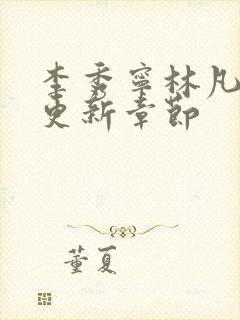 李秀寧林凡
更新章節
董夏